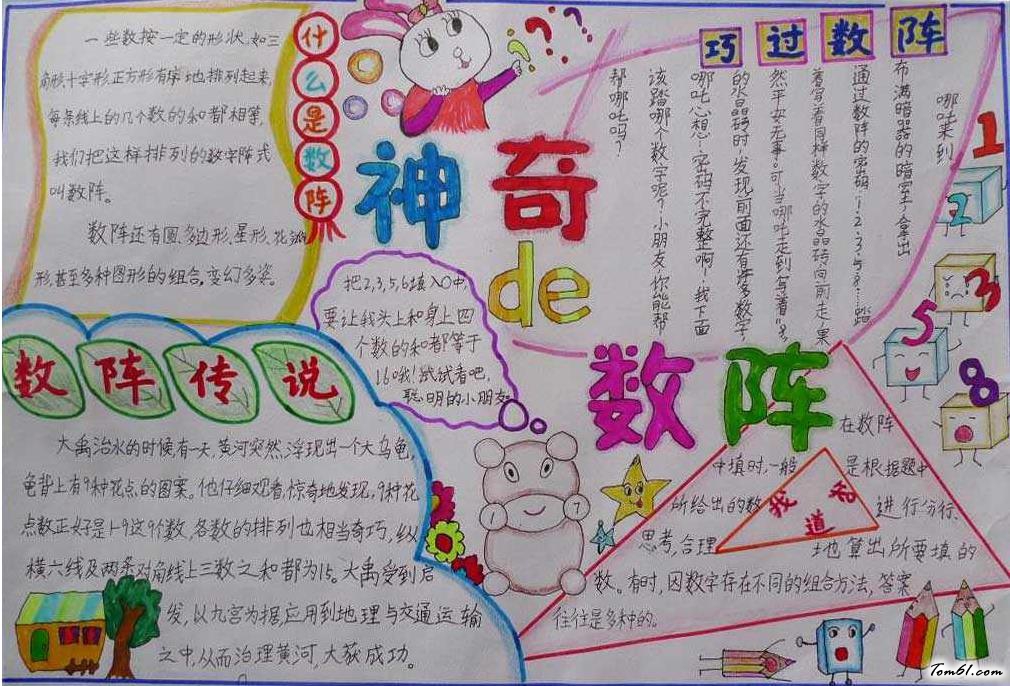 什么是数阵
一些数按一定的形状,如三
角形、十字形、正方形有序地排列起来,
每条线上的几个数的和都相等,
我们把这样排列的数字阵式
叫数阵。
数阵还有圆、多边形、星形、花瓣
形,甚至多种图形的组合,变幻多姿。
神奇
de
数阵
巧过数阵
哪吒来到
布满暗器的暗室,拿出
通过数阵的密码1、2、3、5、8……踏
着写着同样数字的水晶砖向前走,果
然平安无事。可当哪吒走到写着"8"
的水晶砖时,发现前面还有许多数字,
哪吒心想:密码不完整啊!我下面
该踏哪个数字呢?小朋友,你能帮
帮哪吒吗?
1
2
3
5
8
把2,3,5,6填入○中,
要让我头上和身上四
个数的和都等于
16哦!试试看吧,
聪明的小朋友
1
7
数阵传说
大禹治水的时候有一天,黄河突然浮现出一个大乌龟,
龟背上有9种花点的图案。他仔细观看,惊奇地发现,9种花
点数正好是1-9这9个数,各数的排列也相当奇巧,纵
横六线及两条对角线上三数之和都为15。大禹受到启
发,以九宫为据,应用到地理与交通运输
之中,从而治理黄河,大获成功。
我知道
在数阵
中填时,一般是根据题中
所给出的数进行分析、
思考,合理地算出所要填的
数。有时,因数字存在不同的组合方法,答案
往往是多种的。
Tom61.com